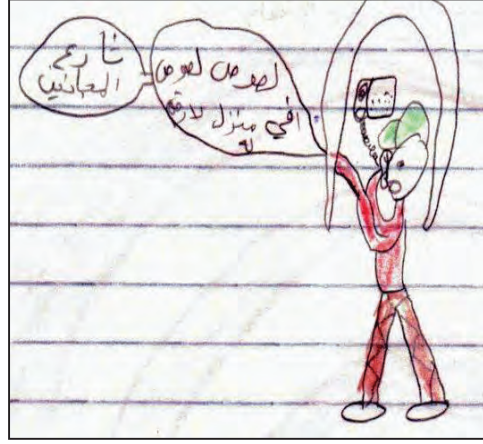 لصوص لصوص
افي منزل لا رقم
له
شارع
المجانين